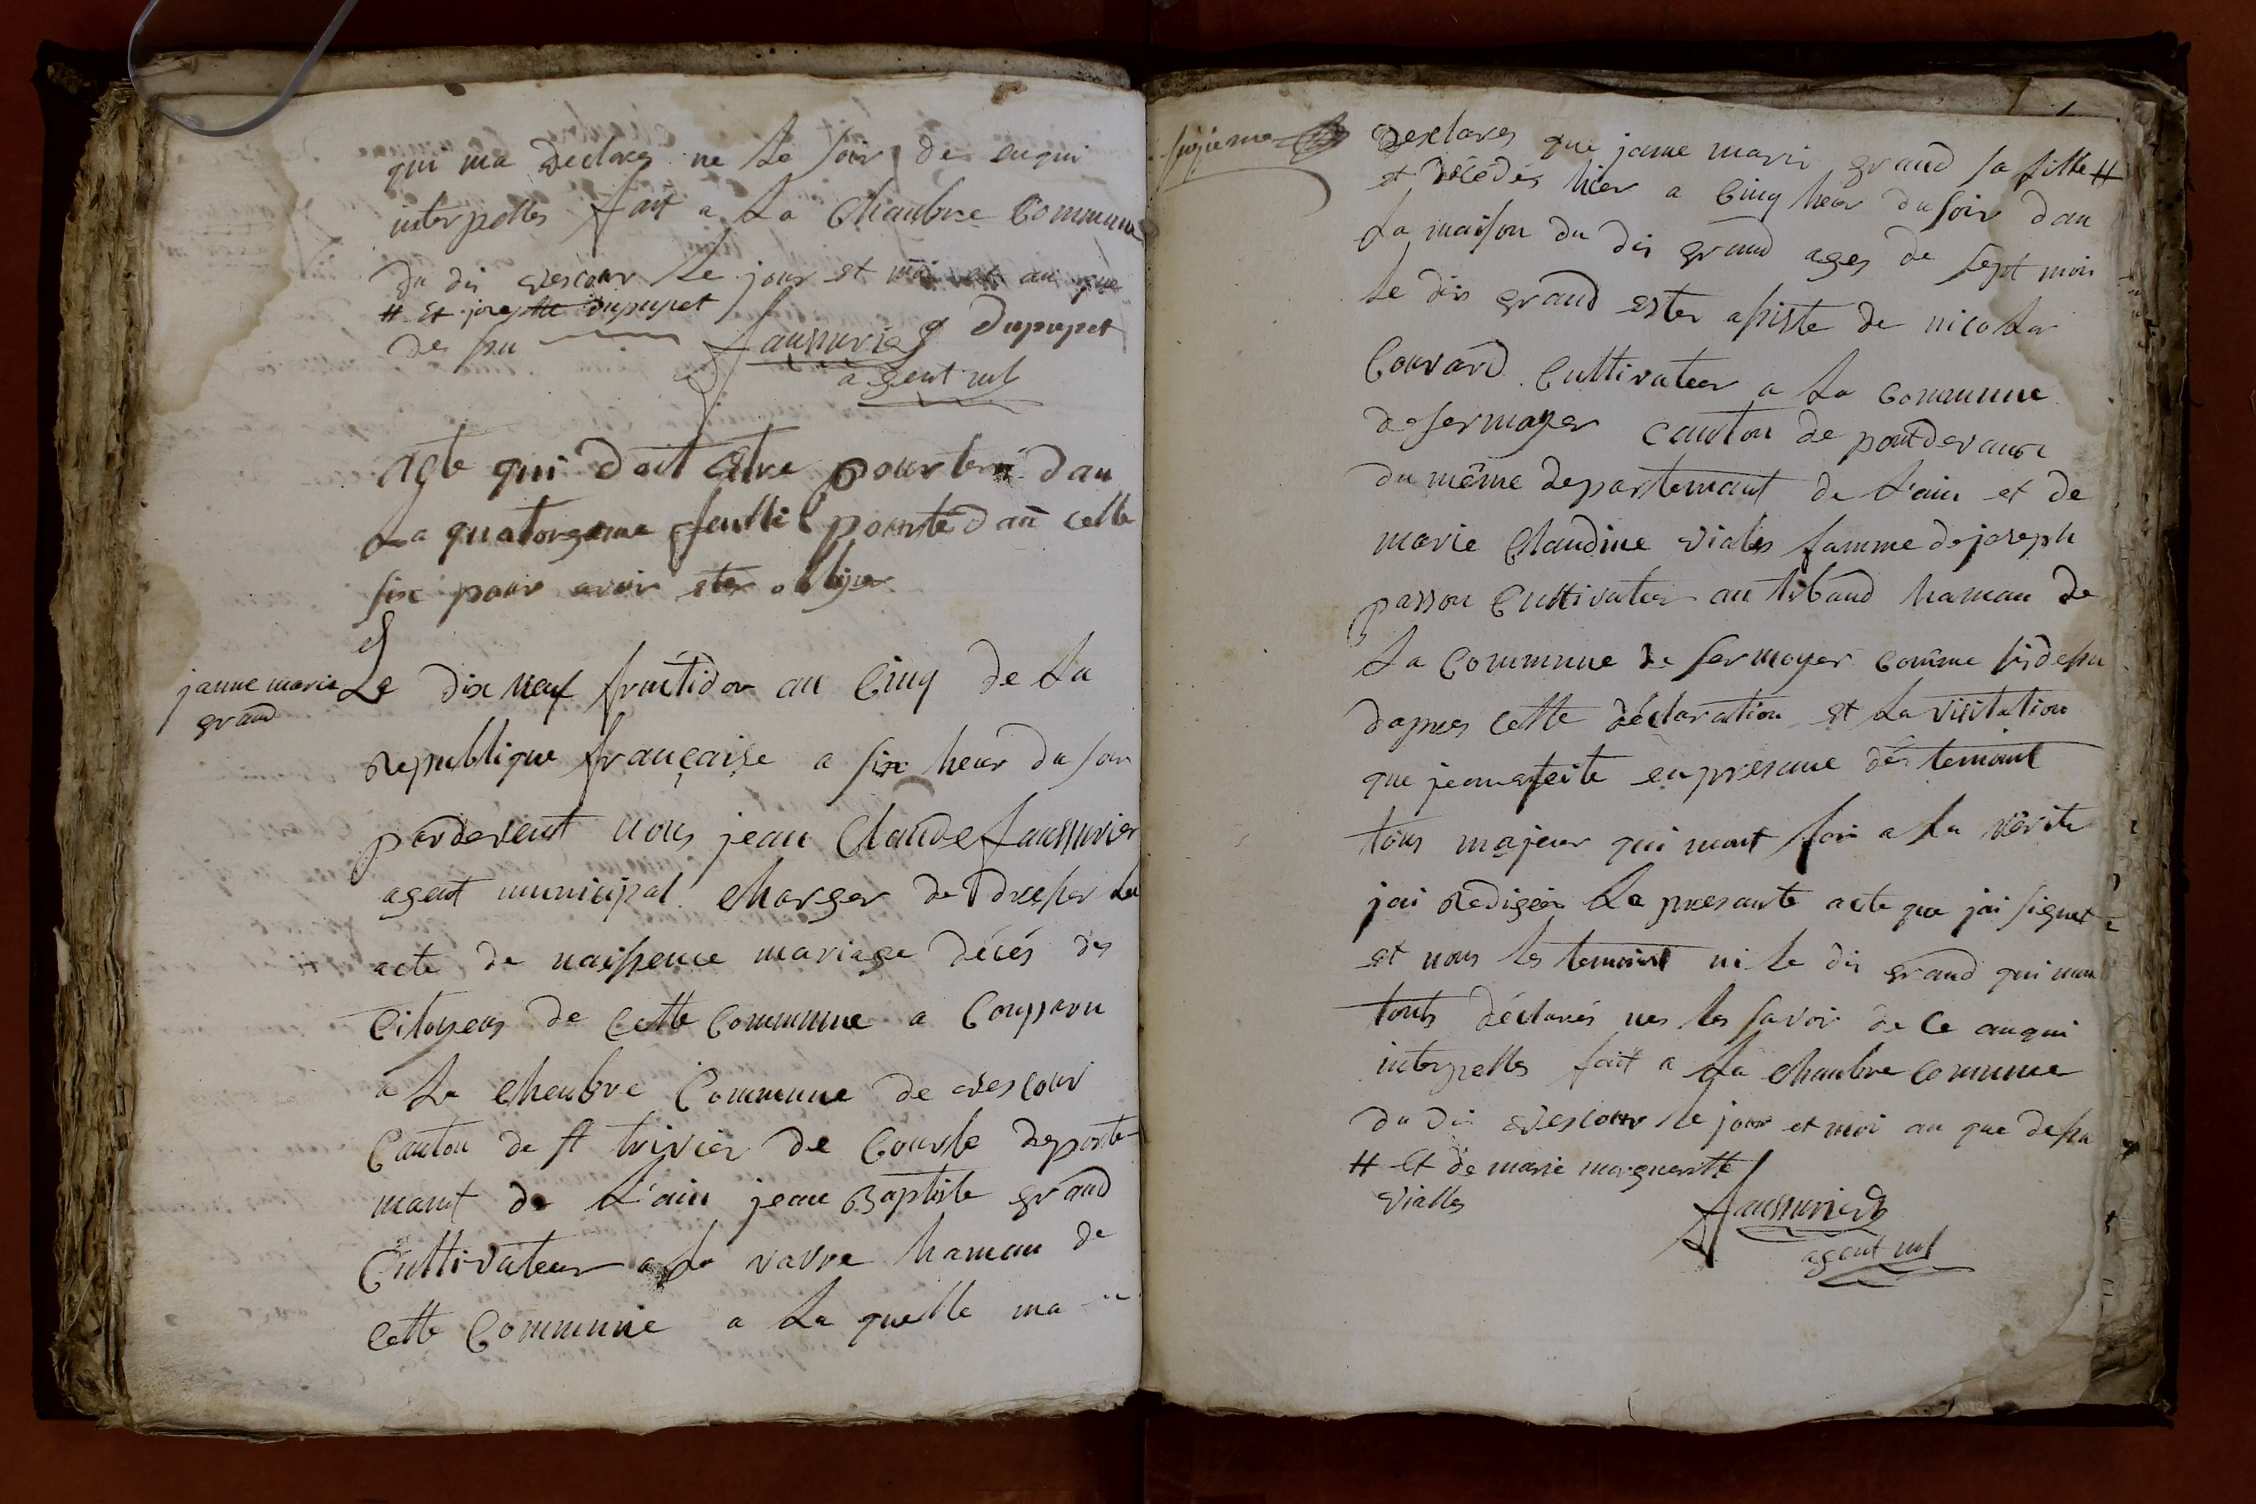 qui ma declarez ne le soir de enqui
interpelles fait a la Chanbre Commune
du dis vescour le jour et moi an que
# et joseptte dupupet
dessu faussurier g dupupet
agent ml
Acte qui doit Etre pourter dan
La quatorzeme feulle pourte dan celle
six pour avoir eter oblijer
janne marie
grand
Le dix neuf fructidor an Cinq de la
Republique française a six heur du soir
pardevent nous jean Claude faussurier
agent municipal charger de dresser les
acte de naissence mariage décés des
Citoyens de cette Commune a Conparu
a la chenbre Commune de vescour
Canton de st trivier de Courte departe-
mant de L'ain jean Baptiste grand
Cultivateur a la vavre hamau de
cette Commune a La quelle ma
sizieme
declares que janne marie grand sa fille #
et décédés hier a Cinq heur du soir dan
La maison du dis grand ages de sept mois
le dis grand ester assiste de nicolas
Couvard Cultivateur a La Conmunne
de sermoyer canton de pontdevaux
du même departemant de L'ain et de
marie Claudine vialles famme de joseph
passon Cultivateur au hamau de
La Commune de sermoyer comme sisdessu
dapres cette déclaration et La visitation
que jeanerfeite en presance des temoint
tous majeur qui mont foi a la vérite
jai Redigéer Le presante acte que jai signet
et nous les temoint ni le dis grand qui mon
touts déclarés nes les savoir de ce auqui
interpelles fait a la chanbre Comune
du dis vescour le jour et moi an que dessu
# et de marie margueritte
vialles
faussurier
agent ml